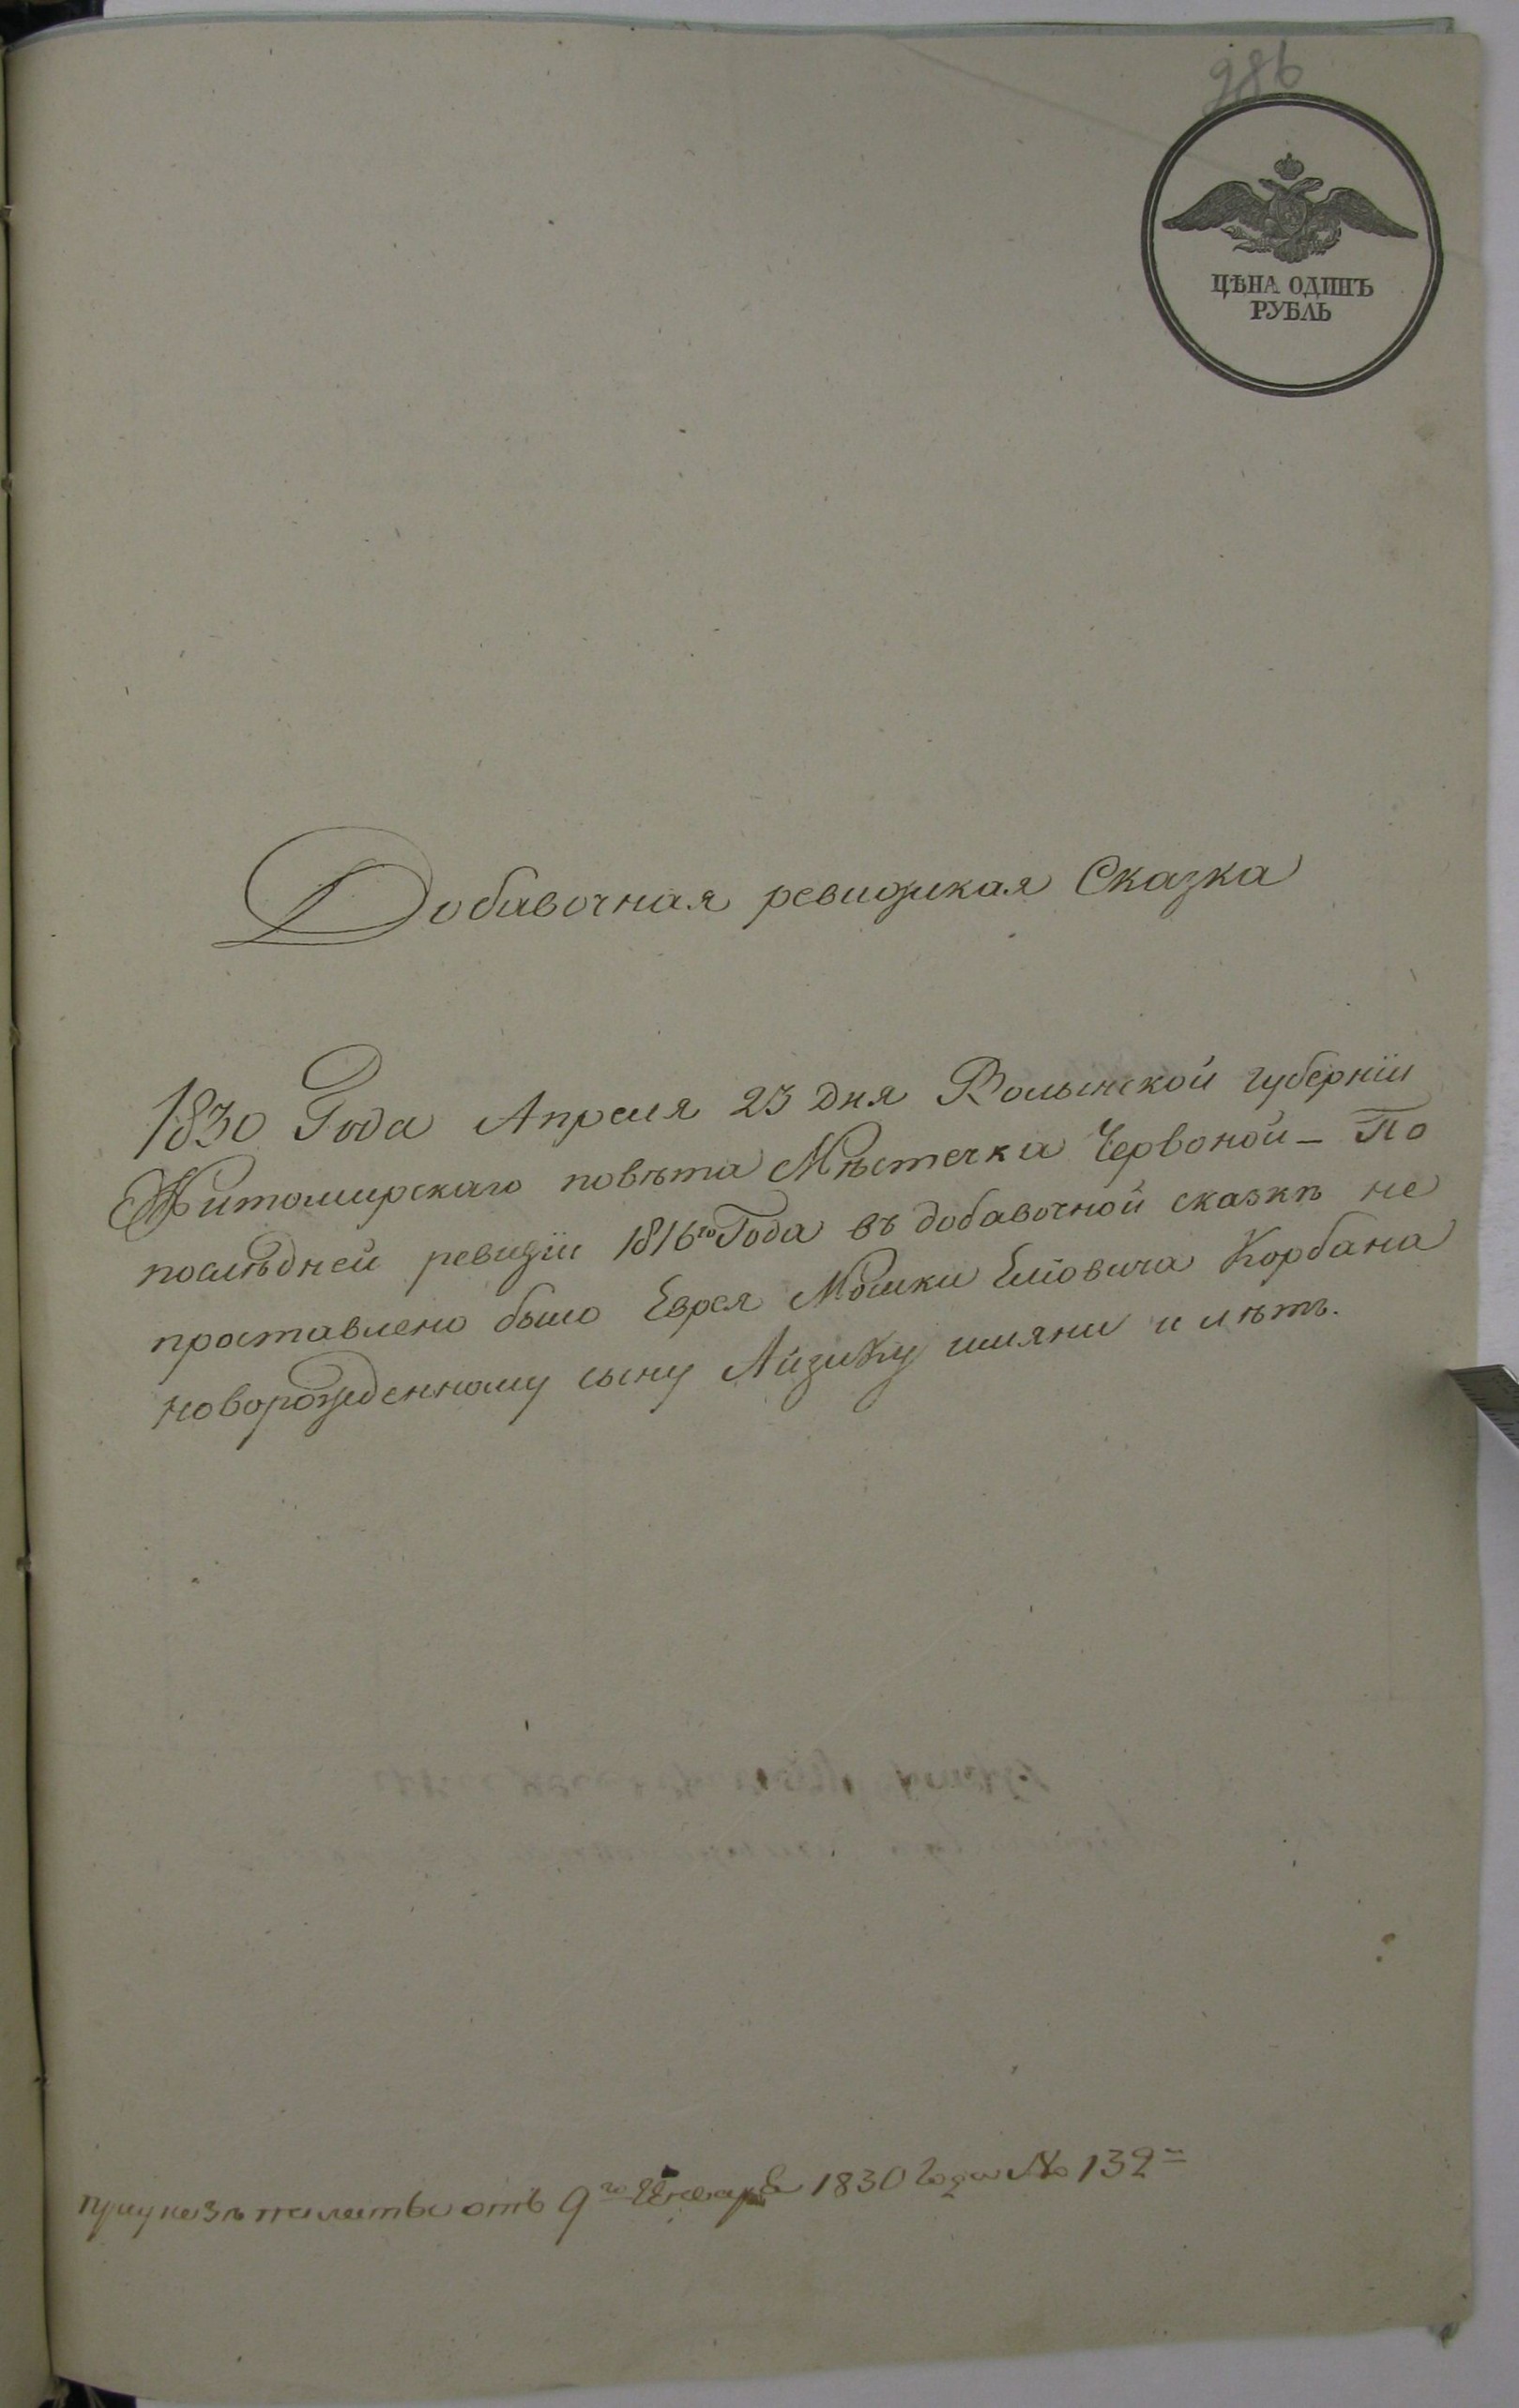 986
ЦѢНА ОДИНЪ
РУБЛЬ
Добавочная ревизская Сказка
1830 Года Апреля 23 дня Волынской губерніи
Житомирскаго повѣта Мѣстечка Червоной – По
послѣдней ревизіи 1816го Года въ добавочной сказкѣ не
проставлено было Еврея Мошки Еліовича Корбана
новорожденному сыну Айзику имяни и лѣтъ.
при указѣ палаты отъ 9го Января 1830 года № 132